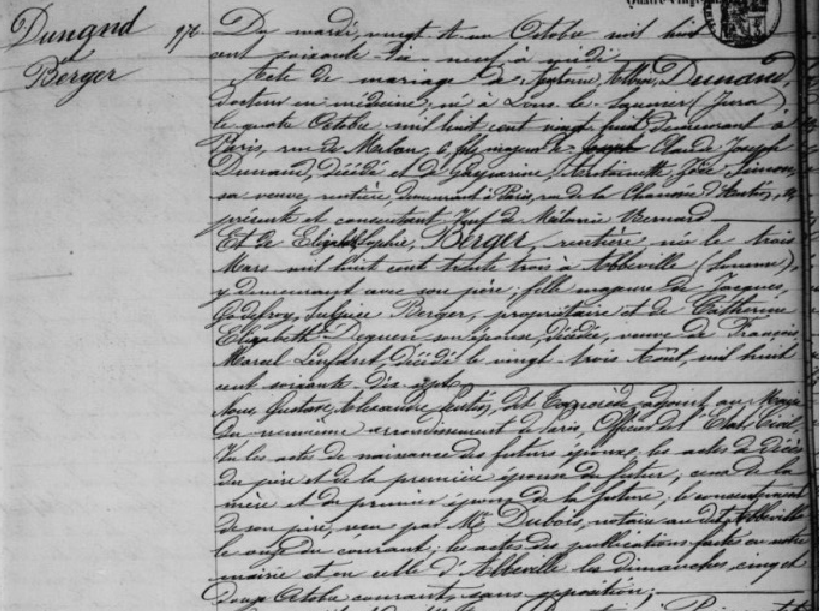 Dunand
et
Berger
976.
Du mardi, vingt et un Octobre mil huit
cent soixante-dix-neuf à midi
Acte de mariage de Antoine Albin, Dunand,
docteur en médecine, né à Lons-le-Saunier (Jura),
le quatre Octobre mil huit cent vingt huit, demeurant à
Paris, rue de Milan, 6, fils majeur de Claude Joseph
Dunand, décédé et de Gasparine Antoinette Simon,
sa veuve, rentière, demeurant à Paris, rue de la Chaussée d'Antin,
présente et consentant, Veuf de Mélanie Bernard
Et de Elizabeth Sophie, Berger, rentière, née le trois
Mars mil huit cent trente trois à Abbeville (Somme),
y demeurant avec son père, fille majeure de Jacques
Godefroy, Sulpice Berger, propriétaire et de Catherine
Elizabeth Dequen son épouse, décédée, veuve de François
Marcel Lenfant, décédé le vingt trois Aout, mil huit
cent soixante dix sept
Nous, Gustave, Alexandre adjoint au Maire
du neuvième arrondissement de Paris, Officier de l'Etat Civil,
Vu les actes de naissance des futurs époux, les actes de décès
du père et de la première épouse du futur, ceux de la
mère et du premier époux de la future; le consentement
de son père, reçu par Me Dubois, notaire au dit Abbeville
le onze du courant; les actes des publications faites en notre
mairie et en celle d'Abbeville les dimanches cinq et
douze Octobre courant, sans opposition;